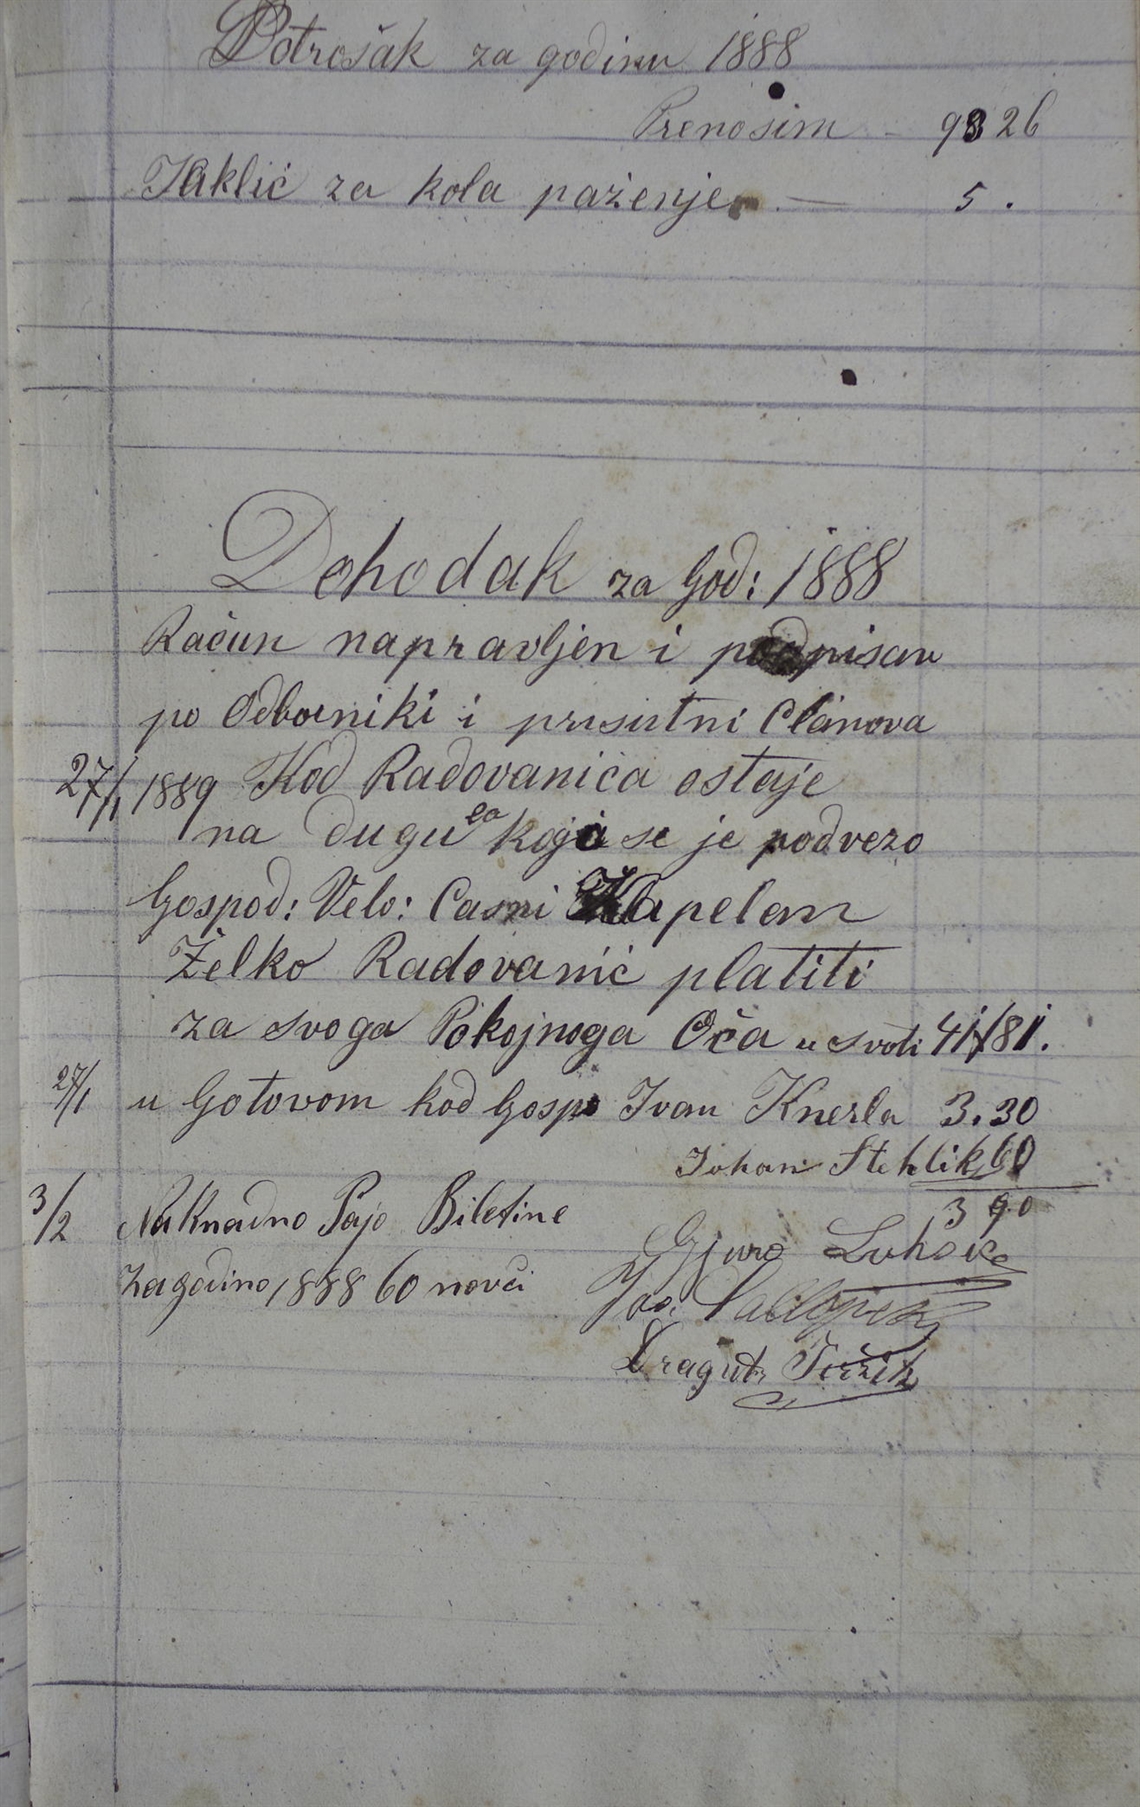 Potrošak za godinu 1888
Prenosim - 93 26
Jaklić za kola paženje. — 5 .
Dohodak za God: 1888
Račun napravljen i podpisan
po Odborniki i prisutni Clanova
27/1 1889 Kod Radovanića ostaje
na dugu koja se je podvezo
Gospod: Velo: Casni Kapelan
Želko Radovanić platiti
za svoga Pokojnoga Oča u svoti 41/81.
27/1 u Gotovom kod Gosp Ivan Knerla 3.30
Johan Stehlik 60
3 90
3/2 Naknadno Pajo Biletine
za godino 1888 60 novči
Gjuro
Dragut